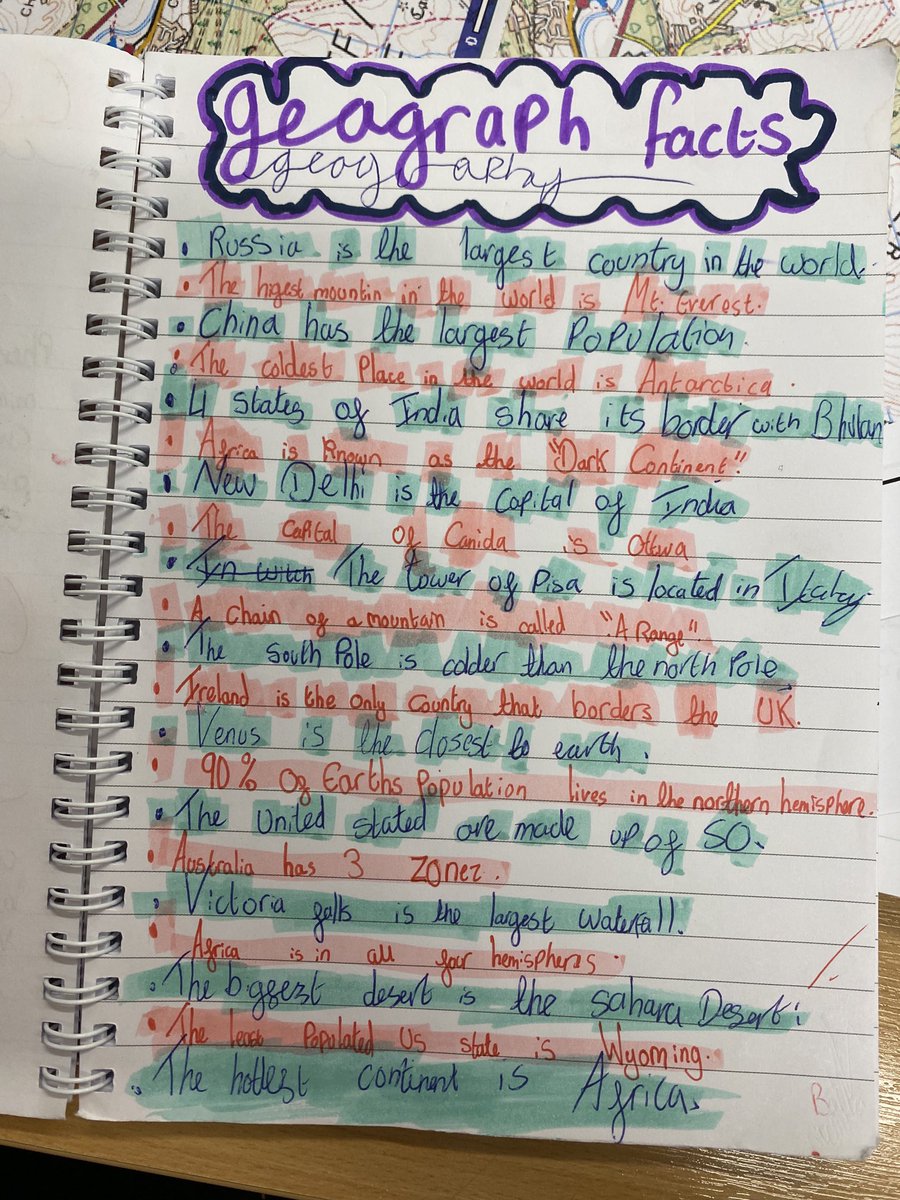 geagraph facts
geography
• Russia is the largest country in the world.
• The higest mountin in the world is Mt. Everest.
• China has the largest Population.
• The coldest Place in the world is Antarctica.
• 4 states of India share its border with Bhutan
• Africa is known as the "Dark Continent".
• New Delhi is the capital of India
• The capital of Canida is Ottwa
• In witch The tower of Pisa is located in Italy.
• A chain of a mountain is called "A Range"
• The south Pole is colder than the north Pole
• Ireland is the only country that borders the UK.
• Venus is the closest to earth.
• 90% of Earths Population lives in the northern hemisphere.
• The united stated are made up of 50.
• Australia has 3 zonez.
• Victoria falls is the largest waterfall.
• Africa is in all four hemispheres.
• The biggest desert is the sahara Desert.
• The least Populated US state is Wyoming.
• The hottest continent is Africa.